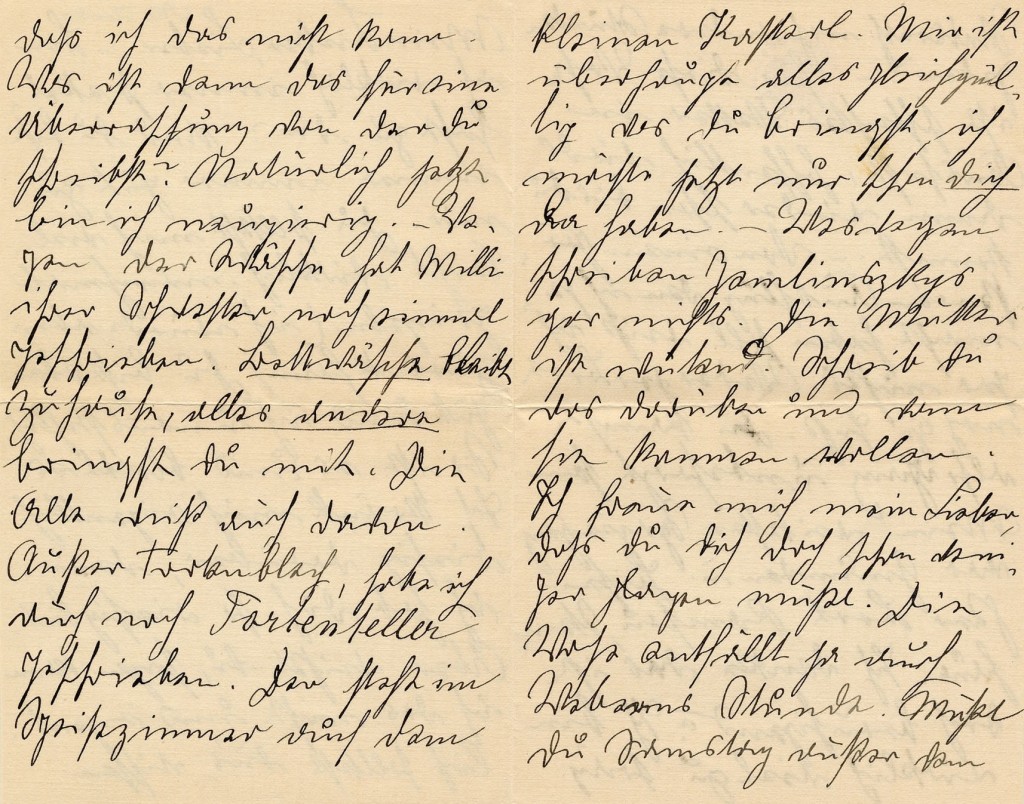 dass ich das nicht kann.
Was ist denn das für eine
Überraschung von der du
schreibst? Natürlich jetzt
bin ich neugierig. – We-
gen der Wäsche hat Willi
ihrer Schwester noch einmal
geschrieben. Bettwäsche bleibt
zuhause, alles andere
bringst du mit. Die
Alte weiß auch davon.
Außer Tortenblech, habe ich
auch noch Tortenteller
geschrieben. Der steht im
Speisezimmer auf dem
kleinen Kasterl. Mir ist
überhaupt alles gleichgül-
tig was du bringst, ich
möchte jetzt nur schon dich
da haben. – Weswegen
schreiben Zemlinszky's
gar nichts. Die Mutter
ist wütend. Schreib du
das darüber und wann
sie kommen wollen.
Ich freue mich mein Lieber,
dass du dich doch schon weni-
ger plagen mußt. Die
Woche entfällt ja auch
Weberns Stunde. Mußt
du Samstag außer dem